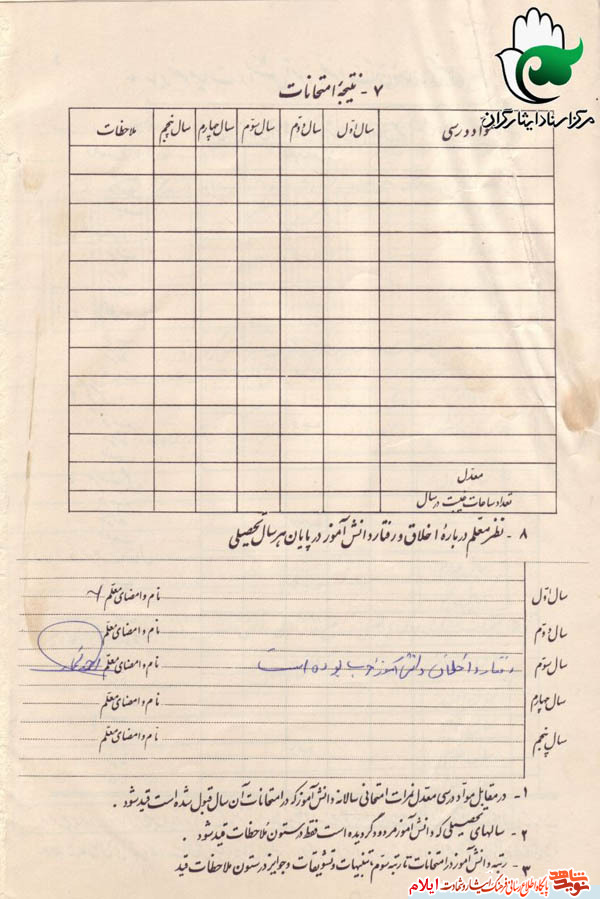 مرکز اسناد ایثارگران
۷- نتیجهٔ امتحانات
مواد درسی سال اوّل سال دوّم سال سوّم سال چهارم سال پنجم ملاحظات
معدل
تعداد ساعات غیبت در سال
۸- نظر معلّم دربارهٔ اخلاق و رفتار دانش آموز در پایان هر سال تحصیلی
سال اوّل نام و امضای معلّم
سال دوّم نام و امضای معلّم
سال سوّم رفتار و اخلاق دانش آموز خوب بوده است نام و امضای معلّم
سال چهارم نام و امضای معلّم
سال پنجم نام و امضای معلّم
۱- در مقابل موادّ درسی معدل نمرات امتحانی سالانه دانش آموز که در امتحانات آن سال قبول شده است قید شود.
۲- سالهای تحصیلی که دانش آموز مردود گردیده است فقط در ستون ملاحظات قید شود.
۳- رتبه دانش آموز در امتحانات تا رتبه سوّم، تنبیهات و تشویقات و جوایز در ستون ملاحظات قید
نوید شاهد پایگاه اطلاع رسانی فرهنگ ایثار و شهادت ایلام